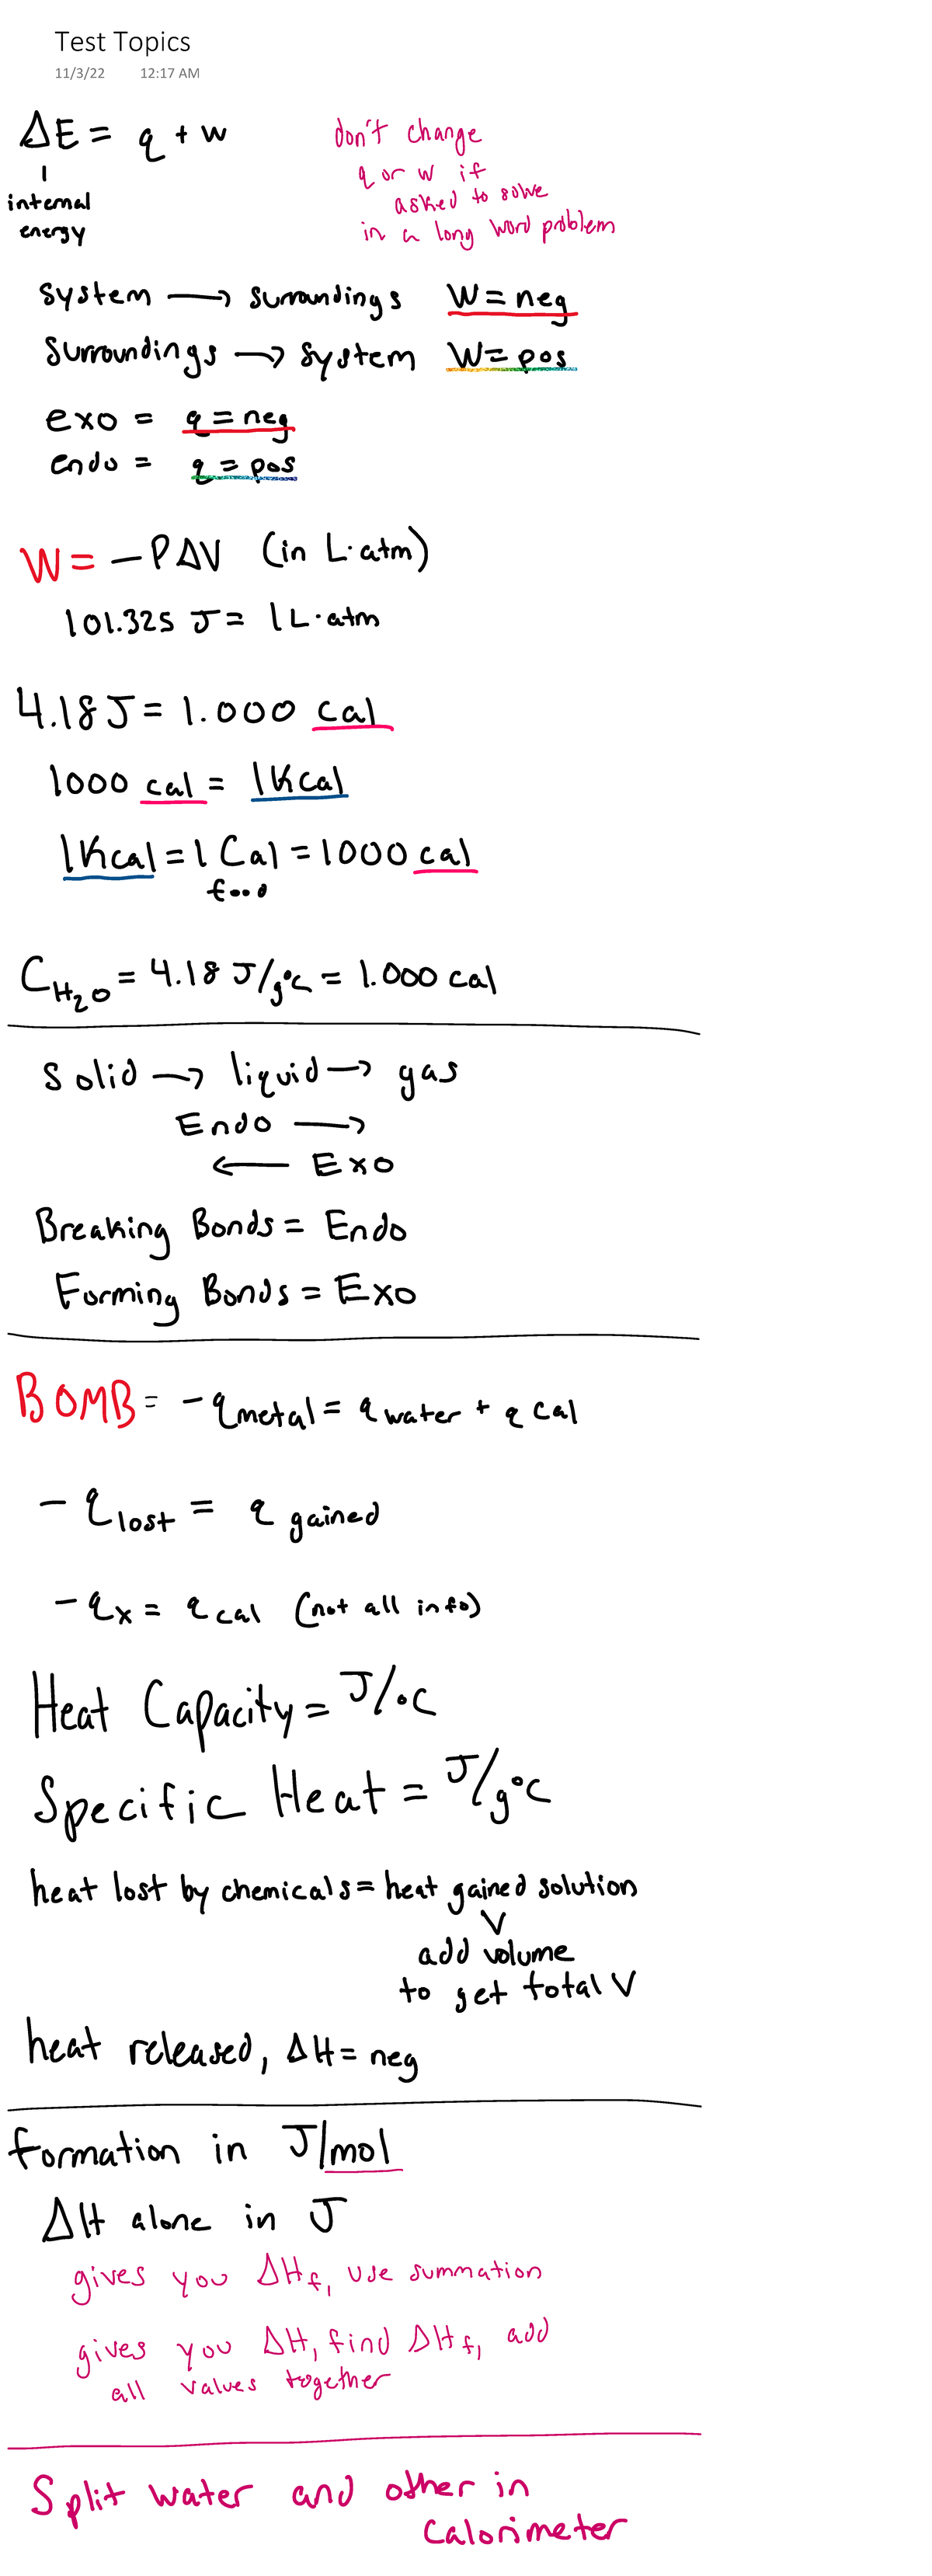 Test Topics
11/3/22 12:17 AM
ΔE = q + w
internal
energy
don't change
q or w if
asked to solve
in a long word problem
System → surroundings W = neg
Surroundings → system W = pos
exo = q = neg
endo = q = pos
W = -PΔV (in L·atm)
101.325 J = 1 L·atm
4.18 J = 1.000 cal
1000 cal = 1 Kcal
1 Kcal = 1 Cal = 1000 cal
food
C H₂O = 4.18 J/g°C = 1.000 cal
Solid → liquid → gas
Endo →
← Exo
Breaking Bonds = Endo
Forming Bonds = Exo
BOMB = - q metal = q water + q cal
- q lost = q gained
- q x = q cal (not all info)
Heat Capacity = J/°C
Specific Heat = J/g°C
heat lost by chemicals = heat gained solution
add volume
to get total V
heat released, ΔH = neg
formation in J/mol
ΔH alone in J
gives you ΔHf, use summation
gives you ΔH, find ΔHf, add
all values together
Split water and other in
Calorimeter